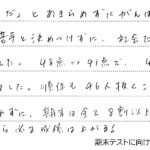 だ。」とあきらめずにがんば
苦手と決めつけずに、社会だ
した。48点→91点で、4
した。順位も46人抜くこ
ずに、期末は全て8割以上
ら必ず成績は上がる。
期末テストに向け